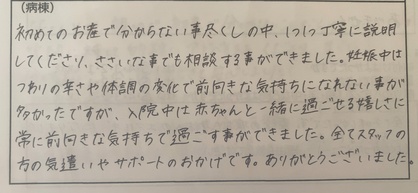 （病棟）
初めてのお産で分からない事尽くしの中、1つ1つ丁寧に説明
してくださり、ささいな事でも相談する事ができました。妊娠中は
つわりの辛さや体調の変化で前向きな気持ちになれない事が
多かったですが、入院中は赤ちゃんと一緒に過ごせる嬉しさに
常に前向きな気持ちで過ごす事ができました。全てスタッフの
方の気遣いやサポートのおかげです。ありがとうございました。